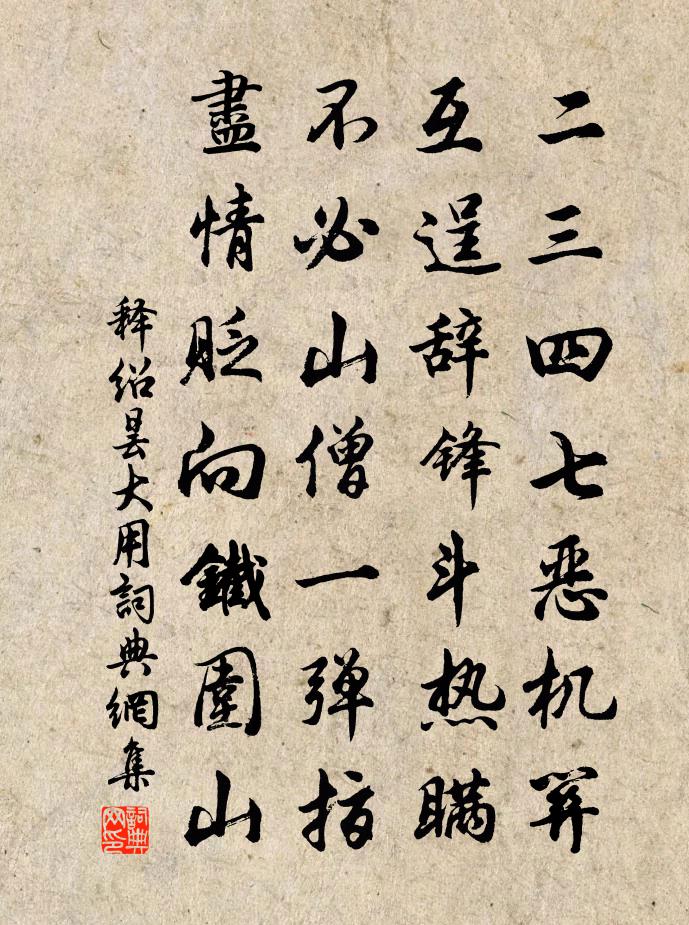 二三四七恶机关
互逞辞锋斗热瞒
不必山僧一弹指
盡情贬向鐵圍山
释绍昙大用詞典網集
詞典网印